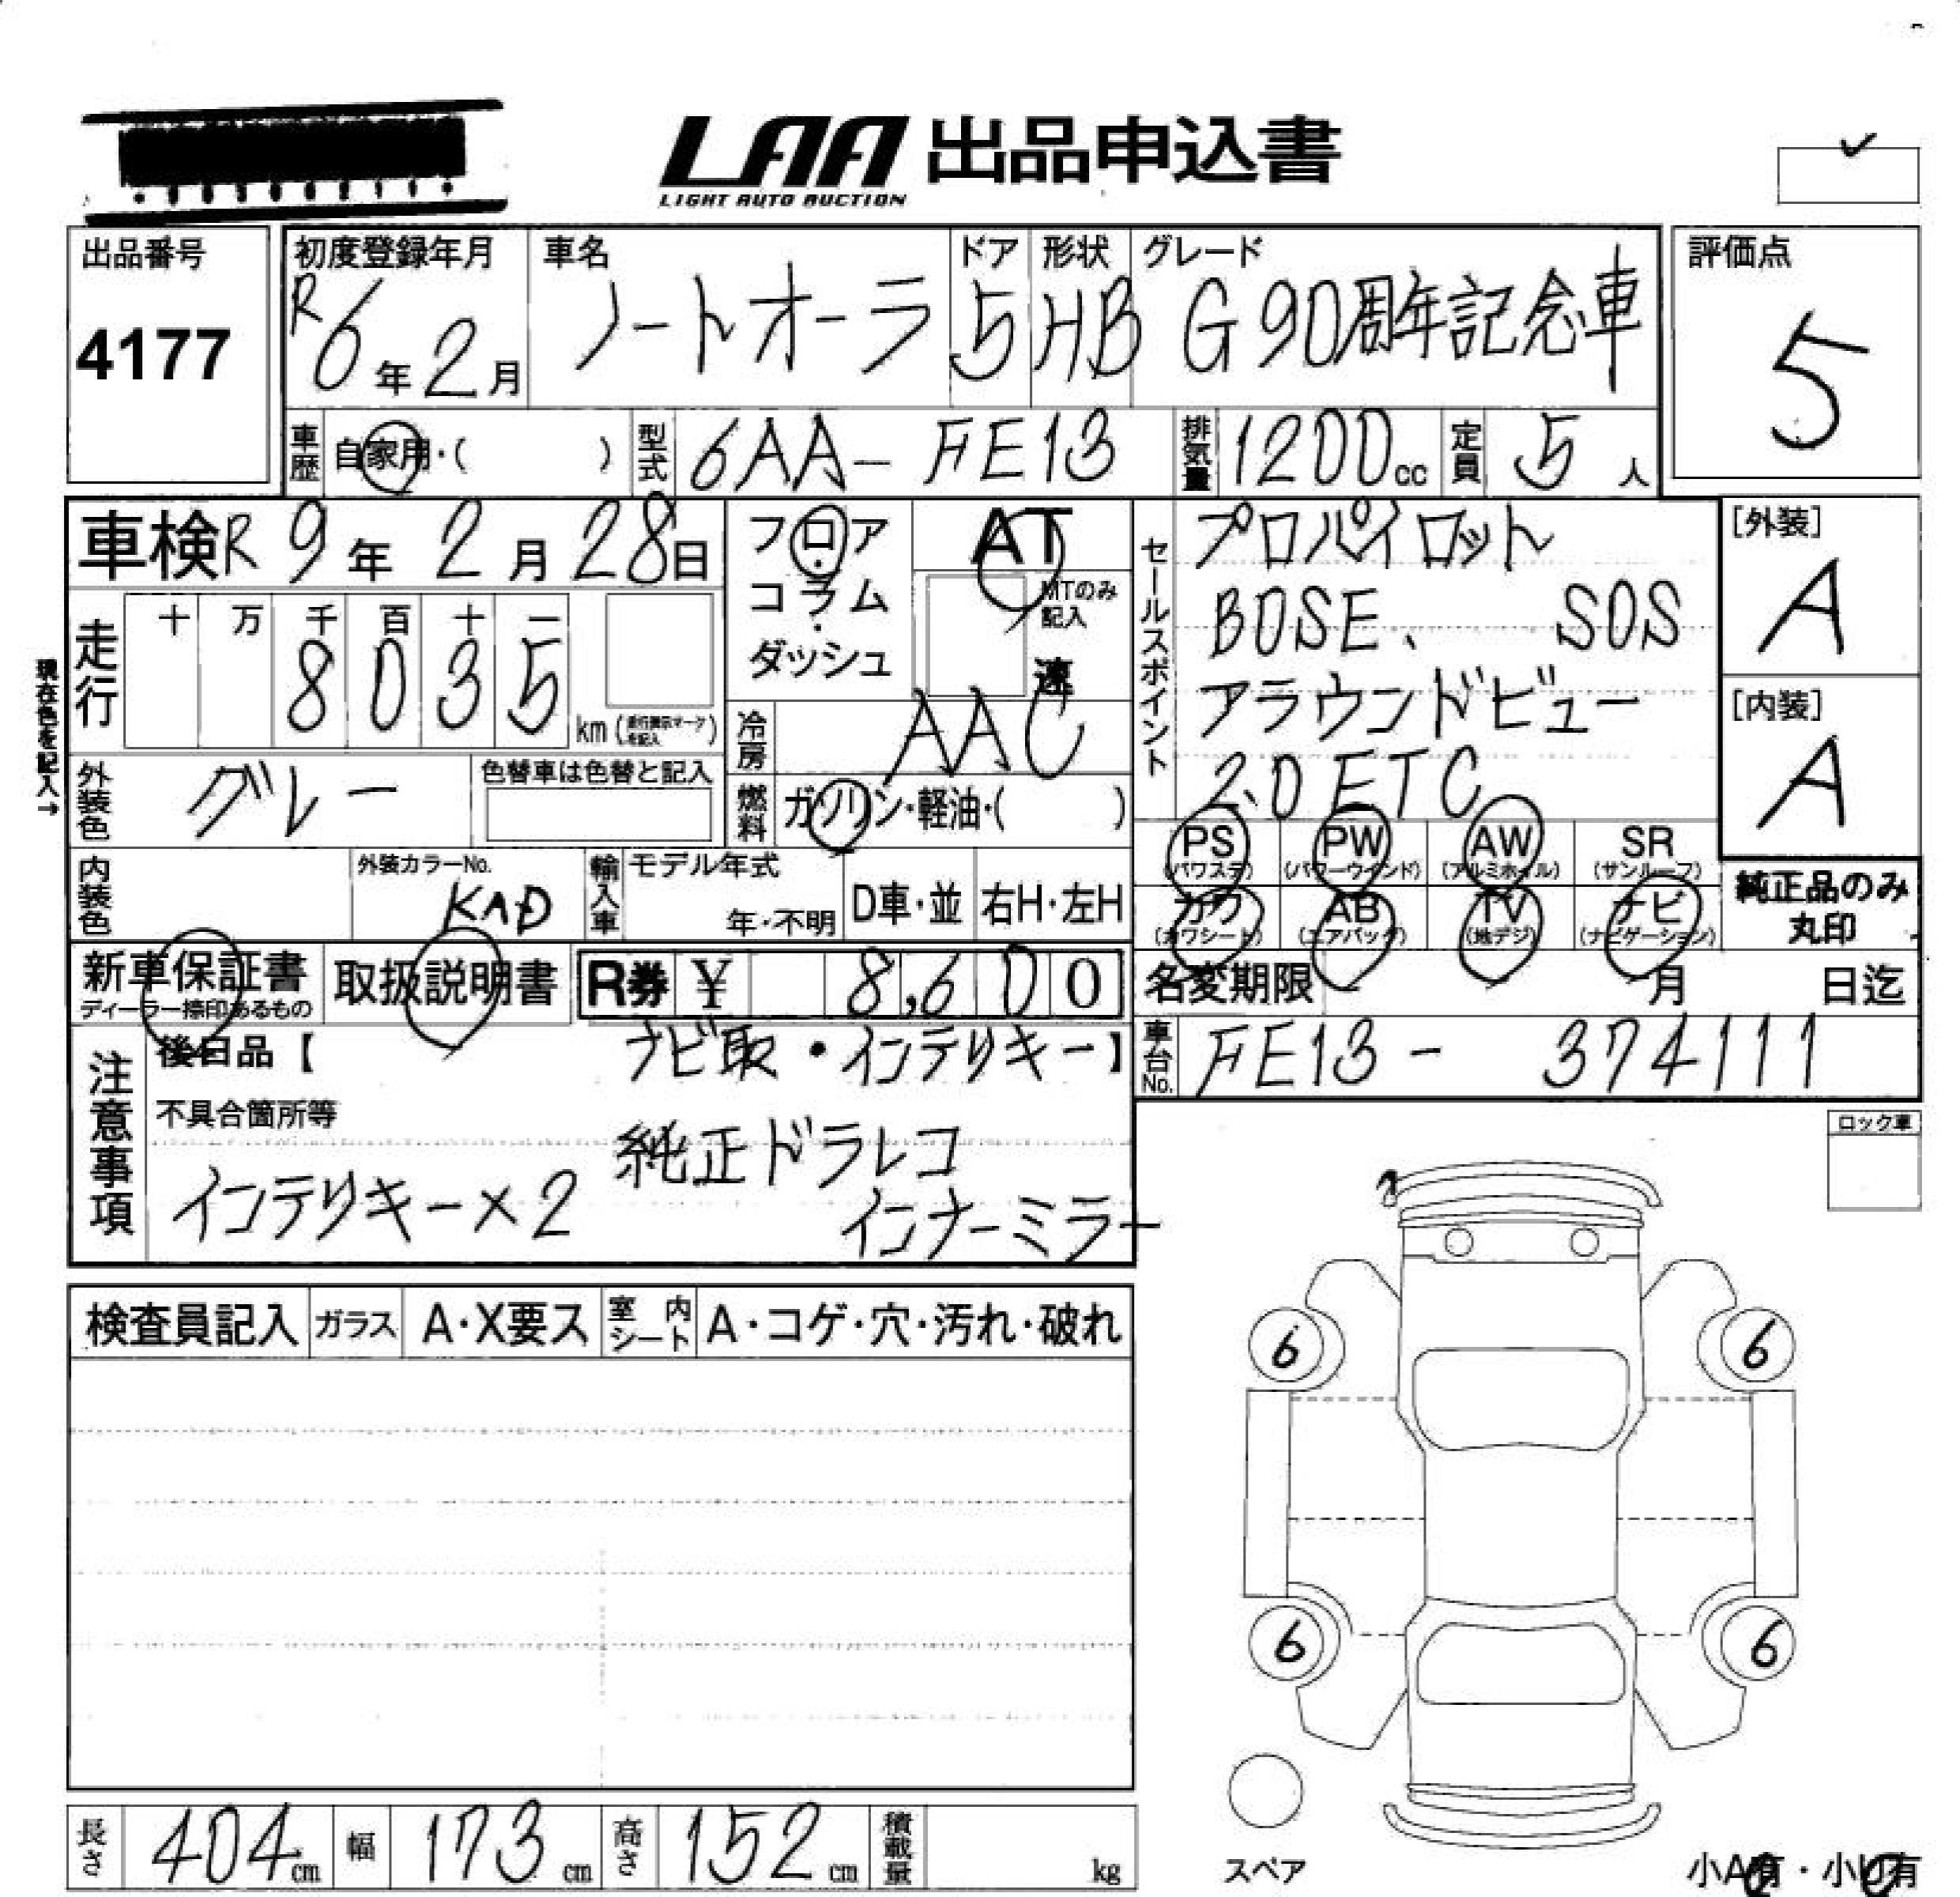 LAA 出品申込書
LIGHT AUTO AUCTION
出品番号
4177
初度登録年月
R6年2月
車名
ノートオーラ
ドア
5
形状
HB
グレード
G90周年記念車
評価点
5
車歴 自家用・( )
型式 6AA-FE13
排気量 1200cc
定員 5人
車検 R9年2月28日
フロア・コラム・ダッシュ
AT
MTのみ記入
速
セールスポイント
プロパイロット
BOSE、 SOS
アラウンドビュー
2.0ETC
[外装]
A
[内装]
A
現在色を記入→
走行 十 万 千 百 十 一
8035
km(走行表示マークを記入)
冷房 AAC
外装色 グレー
色替車は色替と記入
燃料 ガソリン・軽油・( )
PS (パワステ) PW (パワーウインド) AW (アルミホイル) SR (サンルーフ)
カワ (カワシート) AB (エアバッグ) TV (地デジ) ナビ (ナビゲーション)
純正品のみ丸印
内装色
外装カラーNo.
KAD
輸入車 モデル年式
年・不明
D車・並
右H・左H
新車保証書
ディーラー捺印あるもの
取扱説明書
R券 ¥ 8,600
名変期限 月 日迄
車台No. FE13-374111
注意事項
後日品【 ナビ取・インテリキー】
不具合箇所等
純正ドラレコ
インテリキー×2
インナーミラー
ロック車
検査員記入 ガラス A・X要ス 室内シート A・コゲ・穴・汚れ・破れ
6 6
6 6
スペア
小A有・小U有
長さ 404cm 幅 173cm 高さ 152cm 積載量 kg